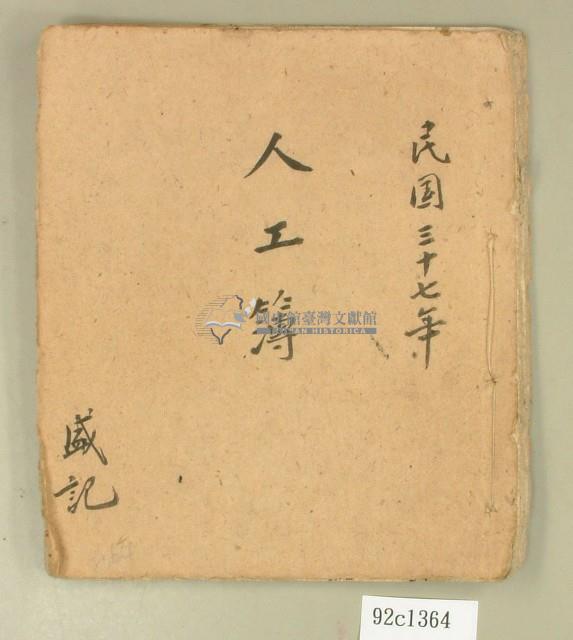 民国三十七年
人工簿
盛記
國史館臺灣文獻館
TAIWAN HISTORICA
92c1364